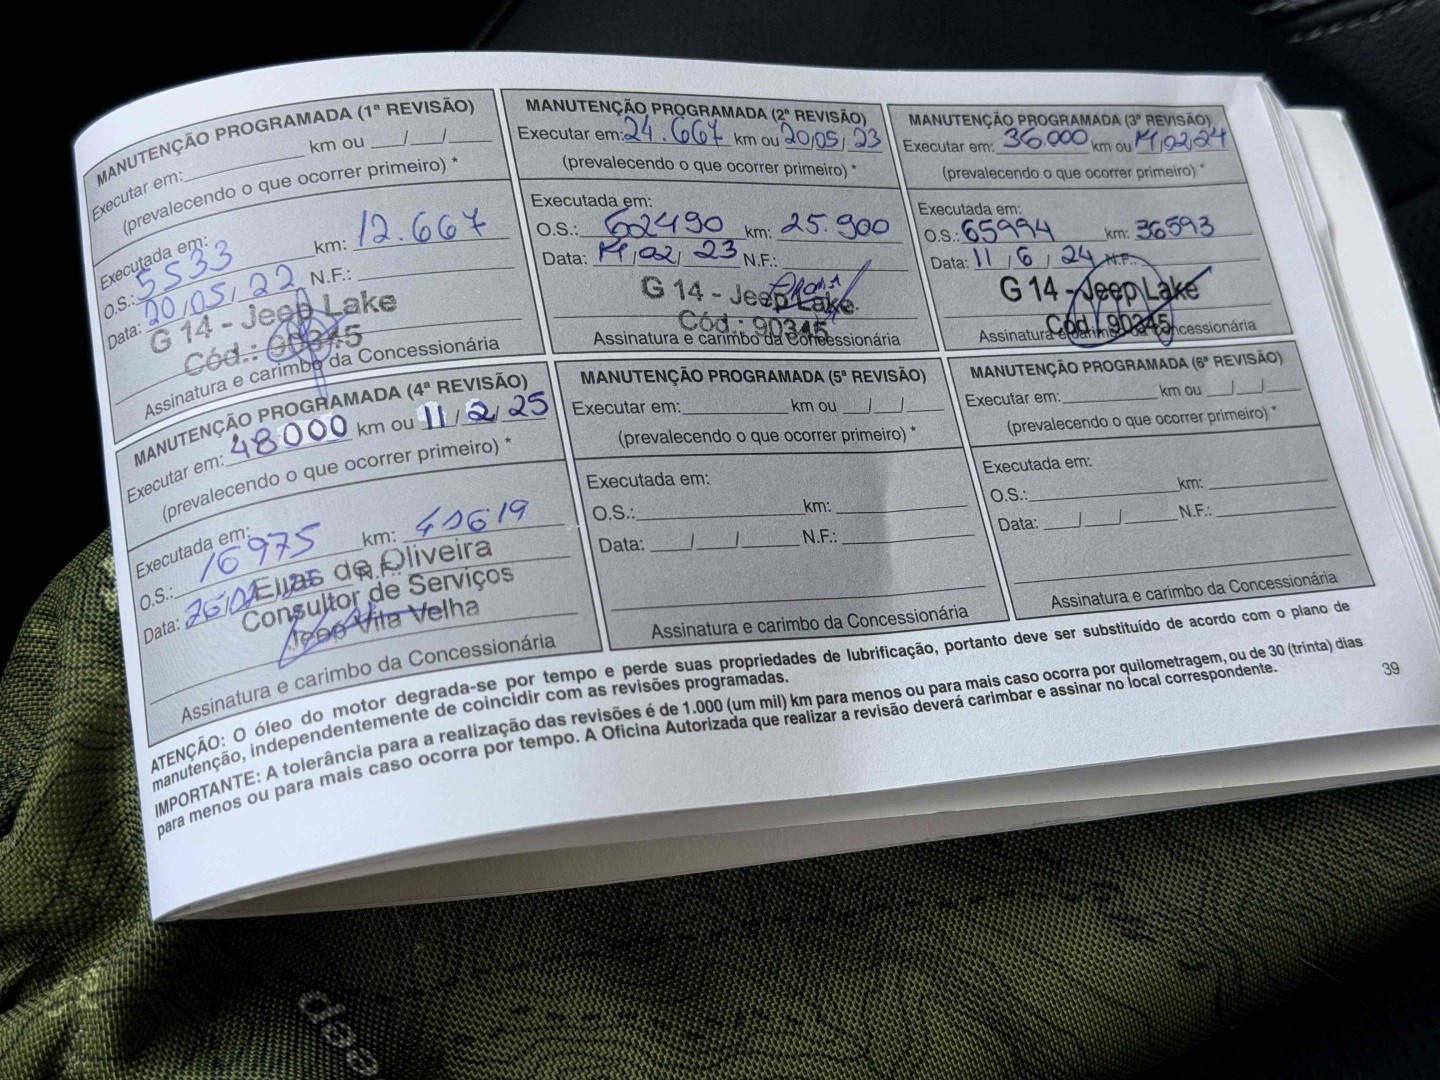 MANUTENÇÃO PROGRAMADA (1ª REVISÃO)
Executar em: km ou / /
(prevalecendo o que ocorrer primeiro) *
Executada em:
O.S.: 5533 km: 12.667
Data: 20/05/22 N.F.:
G 14 - Jeep Lake
Cód.: 90345
Assinatura e carimbo da Concessionária
MANUTENÇÃO PROGRAMADA (2ª REVISÃO)
Executar em: 24.667 km ou 20/05/23
(prevalecendo o que ocorrer primeiro) *
Executada em:
O.S.: 62490 km: 25.900
Data: 02/23 N.F.:
G 14 - Jeep Lake
Cód.: 90345
Assinatura e carimbo da Concessionária
MANUTENÇÃO PROGRAMADA (3ª REVISÃO)
Executar em: 36.000 km ou 02/24
(prevalecendo o que ocorrer primeiro) *
Executada em:
O.S.: 65994 km: 36593
Data: 11/6/24 N.F.:
G 14 - Jeep Lake
Cód.: 90345
Assinatura e carimbo da Concessionária
MANUTENÇÃO PROGRAMADA (4ª REVISÃO)
Executar em: 48000 km ou 11/2/25
(prevalecendo o que ocorrer primeiro) *
Executada em:
O.S.: 16975 km:
Data: N.F.:
Elias de Oliveira
Consultor de Serviços
Jeep Vila Velha
Assinatura e carimbo da Concessionária
MANUTENÇÃO PROGRAMADA (5ª REVISÃO)
Executar em: km ou / /
(prevalecendo o que ocorrer primeiro) *
Executada em:
O.S.: km:
Data: / / N.F.:
Assinatura e carimbo da Concessionária
MANUTENÇÃO PROGRAMADA (6ª REVISÃO)
Executar em: km ou / /
(prevalecendo o que ocorrer primeiro) *
Executada em:
O.S.: km:
Data: / / N.F.:
Assinatura e carimbo da Concessionária
ATENÇÃO: O óleo do motor degrada-se por tempo e perde suas propriedades de lubrificação, portanto deve ser substituído de acordo com o plano de
manutenção, independentemente de coincidir com as revisões programadas.
IMPORTANTE: A tolerância para a realização das revisões é de 1.000 (um mil) km para menos ou para mais caso ocorra por quilometragem, ou de 30 (trinta) dias
para menos ou para mais caso ocorra por tempo. A Oficina Autorizada que realizar a revisão deverá carimbar e assinar no local correspondente.
39